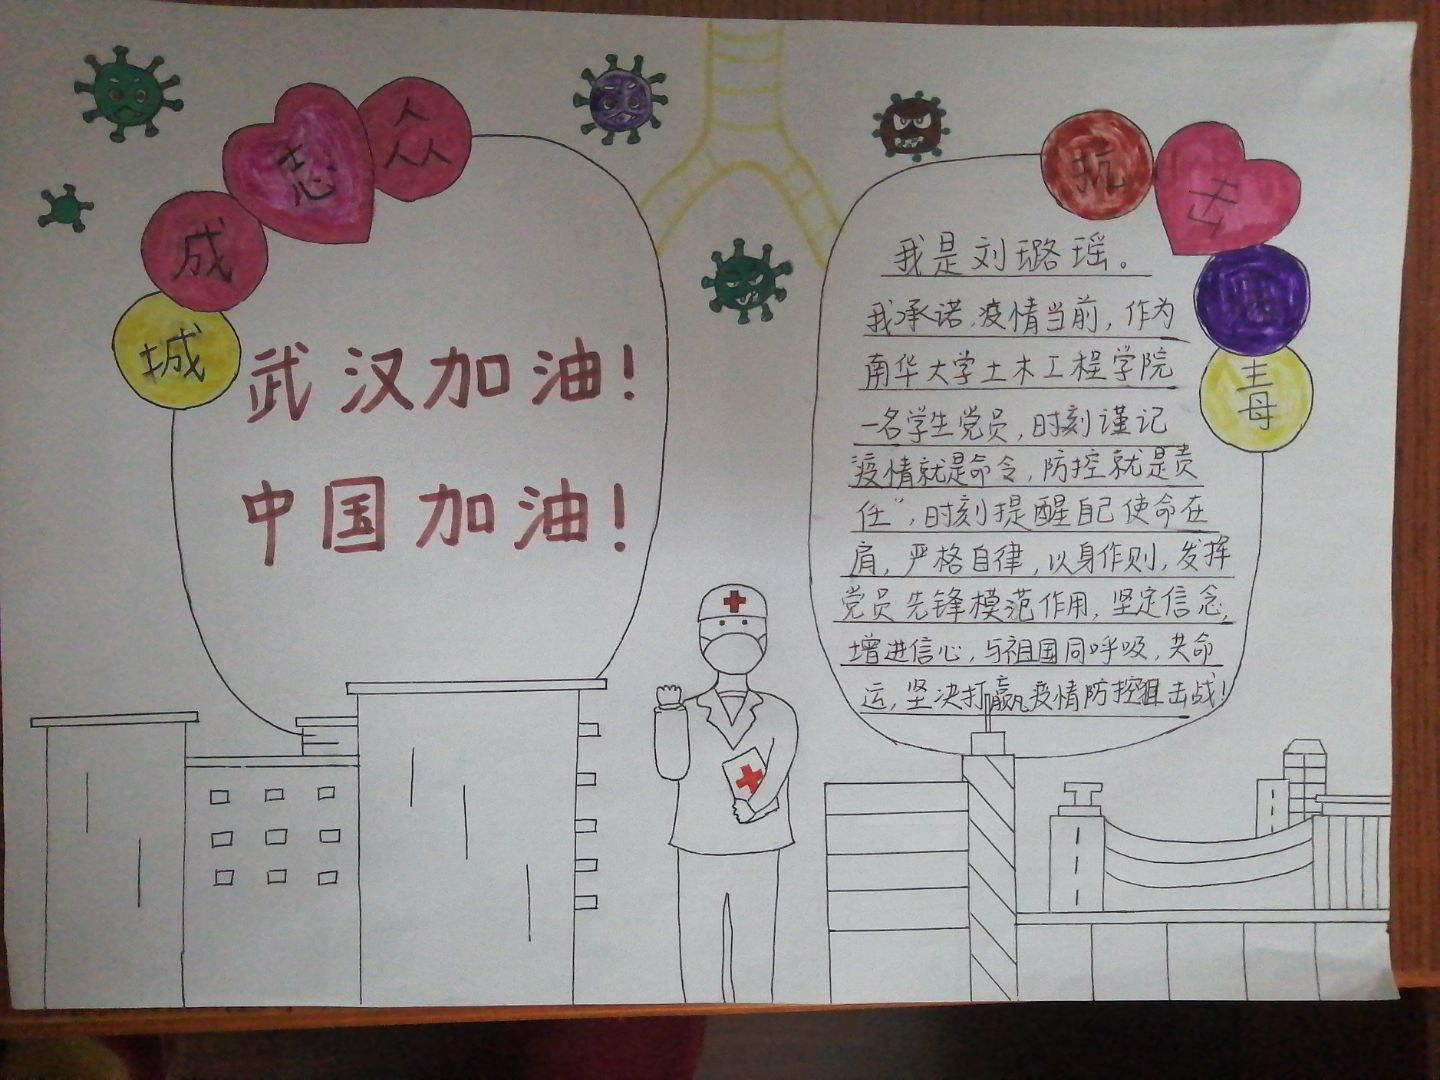 众志成城
武汉加油!
中国加油!
抗击毒
我是刘璐瑶。
我承诺,疫情当前,作为
南华大学土木工程学院
一名学生党员,时刻谨记
疫情就是命令,防控就是责
任",时刻提醒自己使命在
肩,严格自律,以身作则,发挥
党员先锋模范作用,坚定信念,
增进信心,与祖国同呼吸,共命
运,坚决打赢疫情防控阻击战!